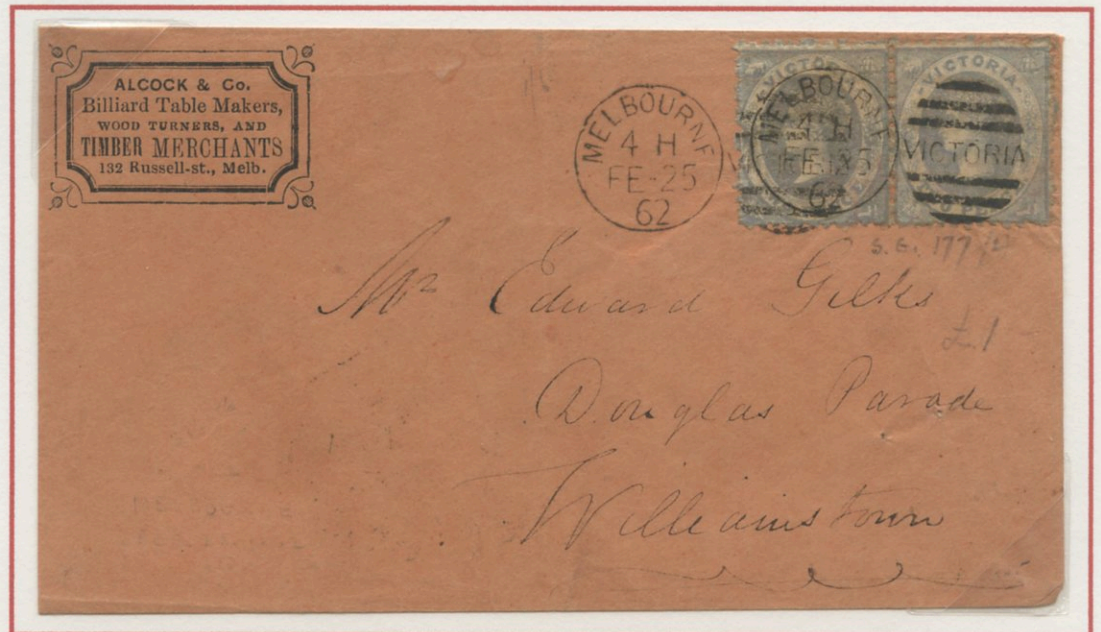 ALCOCK & Co.
Billiard Table Makers,
WOOD TURNERS, AND
TIMBER MERCHANTS
132 Russell-st., Melb.
MELBOURNE
4 H
FE-25
62
VICTORIA
MELBOURNE
4 H
FE-25
62
VICTORIA
VICTORIA
VICTORIA
S.G. 177
Mr Edward Gilks
£1
Douglas Parade
Williamstown